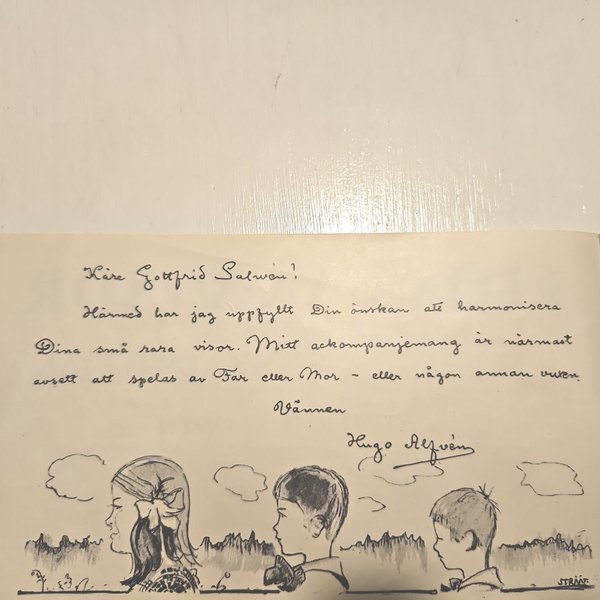 Käre Gottfrid Salwén!
Härmed har jag uppfyllt Din önskan att harmonisera
Dina små rara visor. Mitt ackompanjemang är närmast
avsett att spelas av Far eller Mor – eller någon annan vuxen.
Vännen
Hugo Alfvén